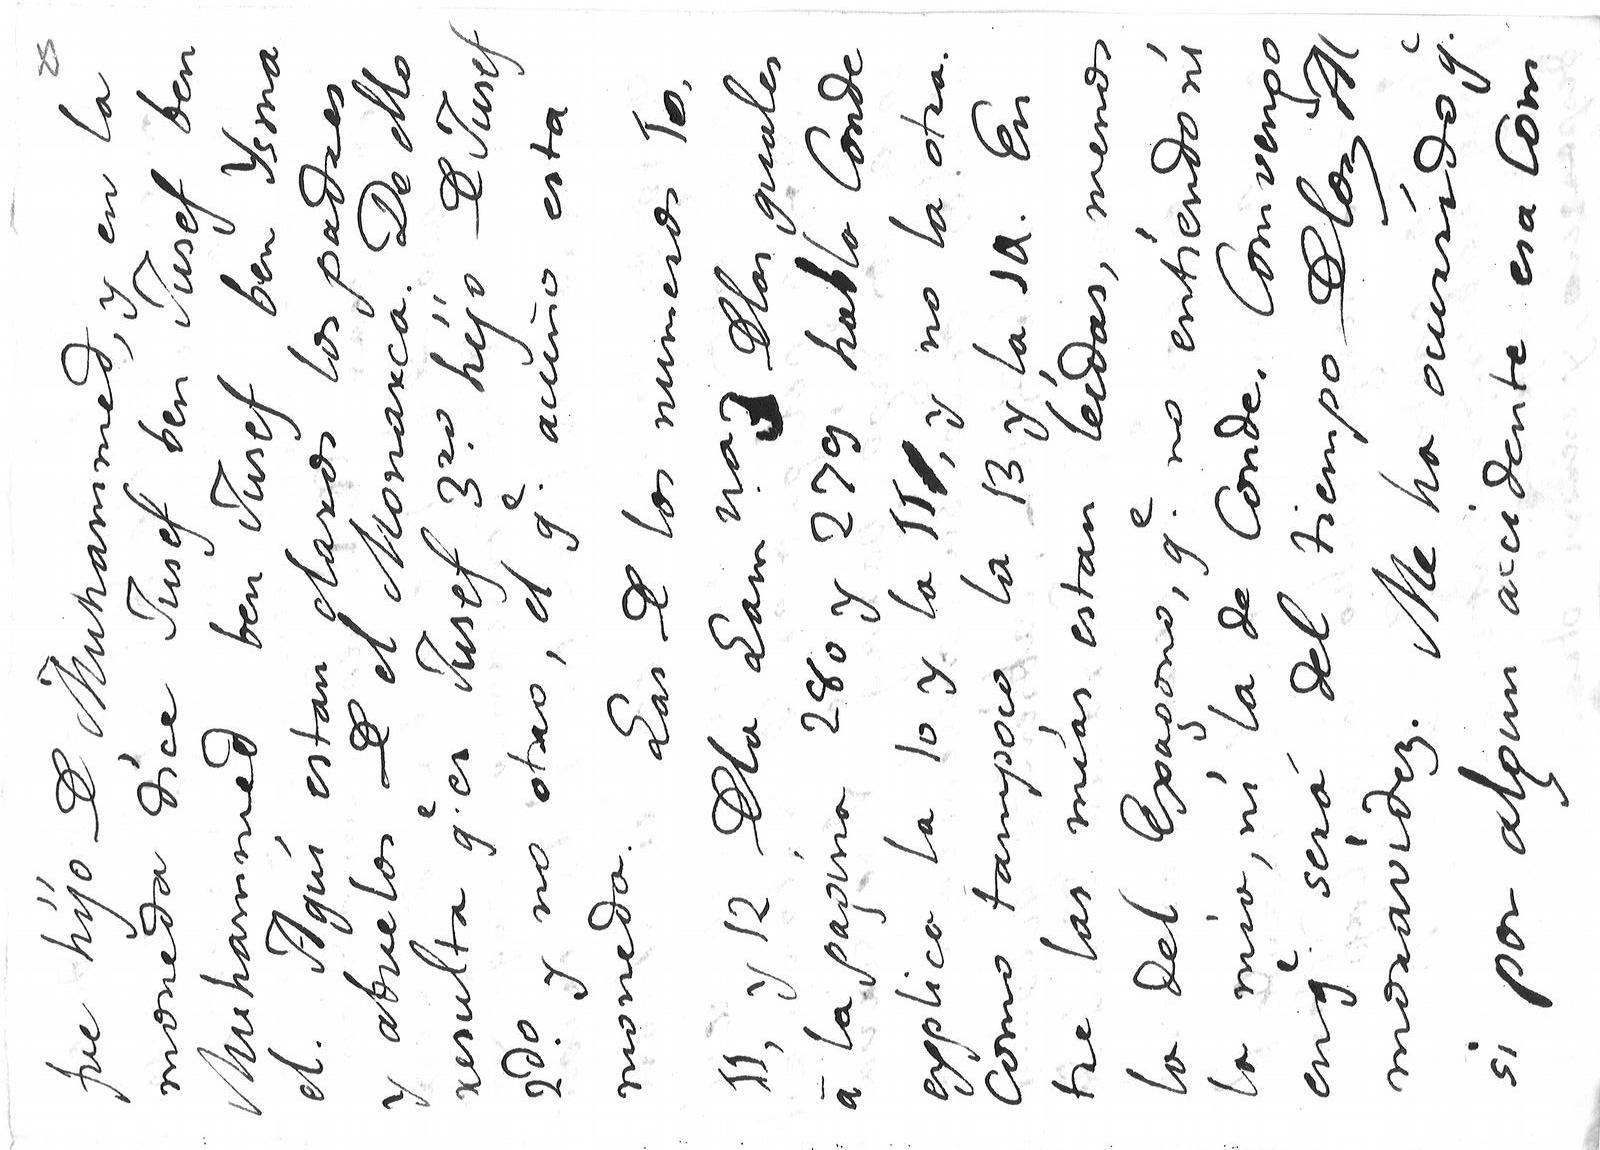 8
fue hijo D Muhammed, y en la
moneda dice Jusef ben Jusef ben
Muhammed ben Jusef ben Ysma
el. Aqui estan claros los padres
y abuelos D el Monarca. De ello
resulta q.e es Jusef 3.ro hijo D Jusef
2do. y no otro, el q.e acuño esta
moneda. Las D los numeros 10,
11, y 12 Dla Lam na Dlas quales
á la pagina 280 y 279 hablo Conde
explico la 10 y la 11, y no la otra.
Como tampoco la 13 y la 1a. En
tre las mías estan leídas, menos
lo del Exagono, q.e no entiendo ni
lo mio, ni la de Conde. Convengo
en q.e será del tiempo Dlos Al
moravídez. Me ha ocurrido q.e
si por algun accidente esa Com